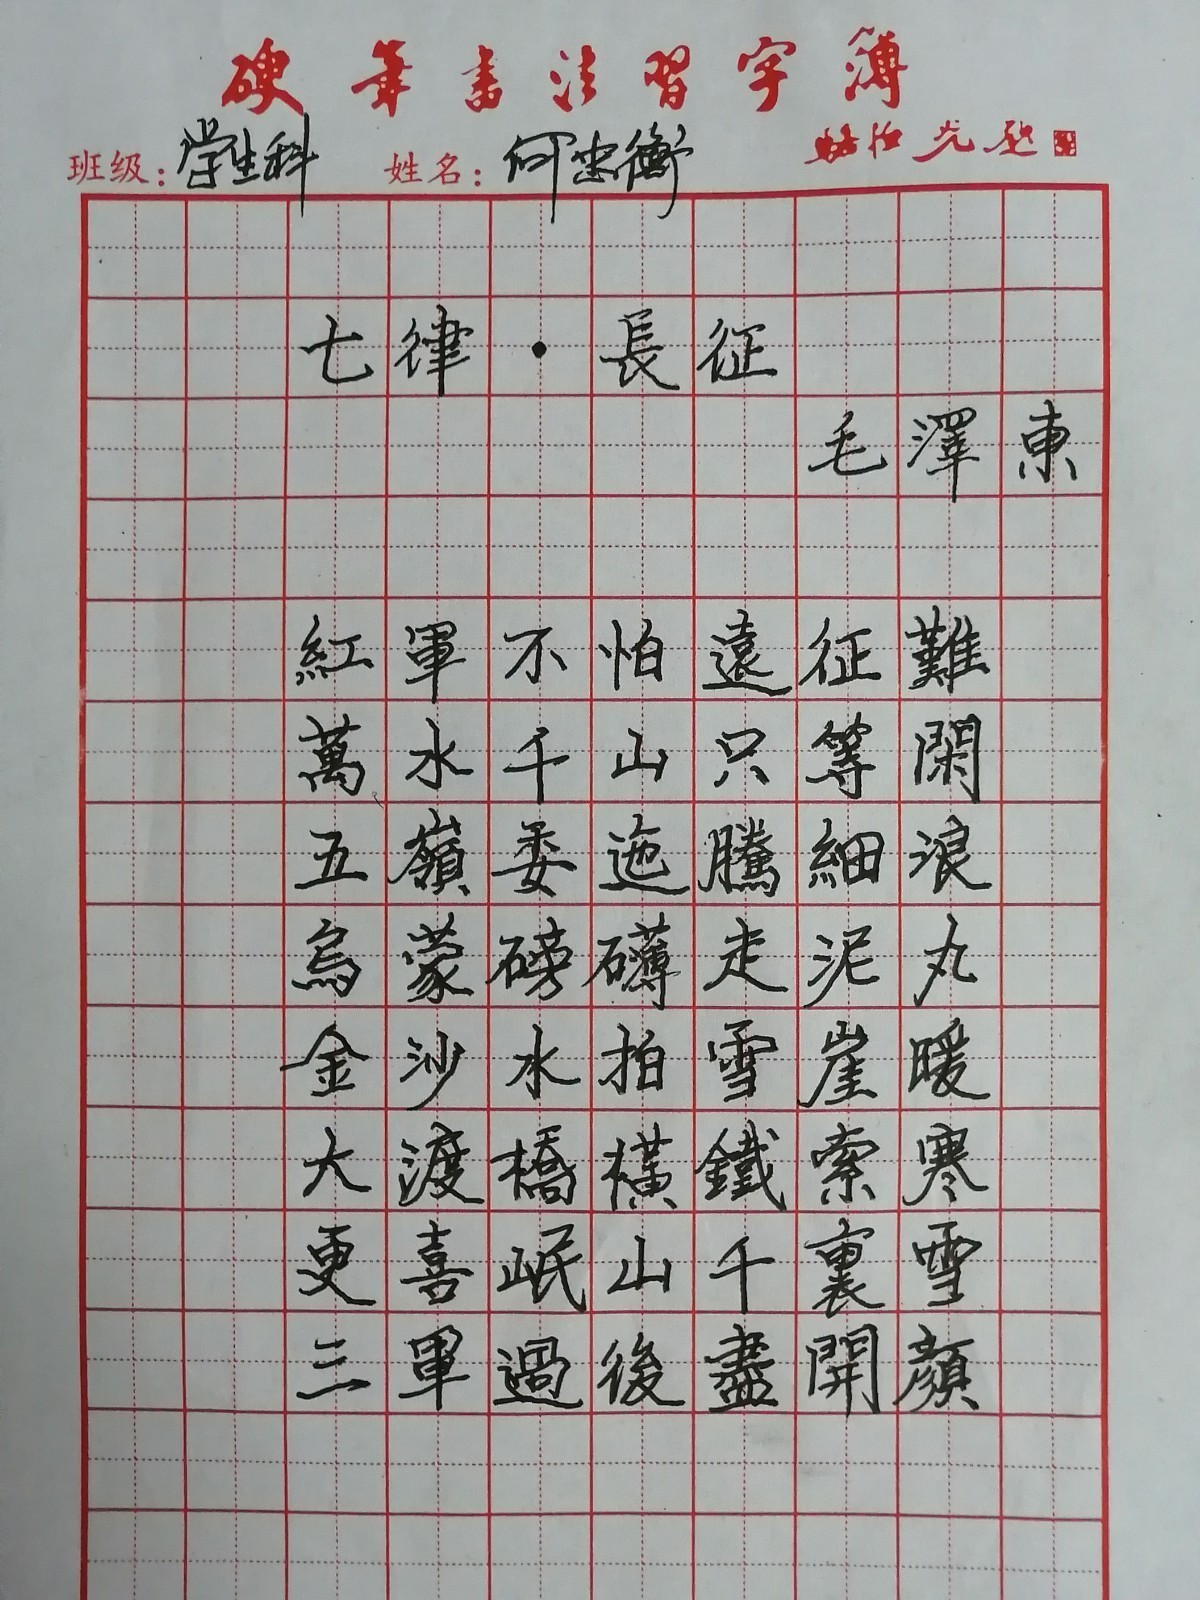 硬筆書法習字簿
班级：学生科 姓名：何忠衡
七律·長征
毛澤東
紅軍不怕遠征難
萬水千山只等閑
五嶺委迤騰細浪
烏蒙磅礴走泥丸
金沙水拍雪崖暖
大渡橋橫鐵索寒
更喜岷山千裏雪
三軍過後盡開顏